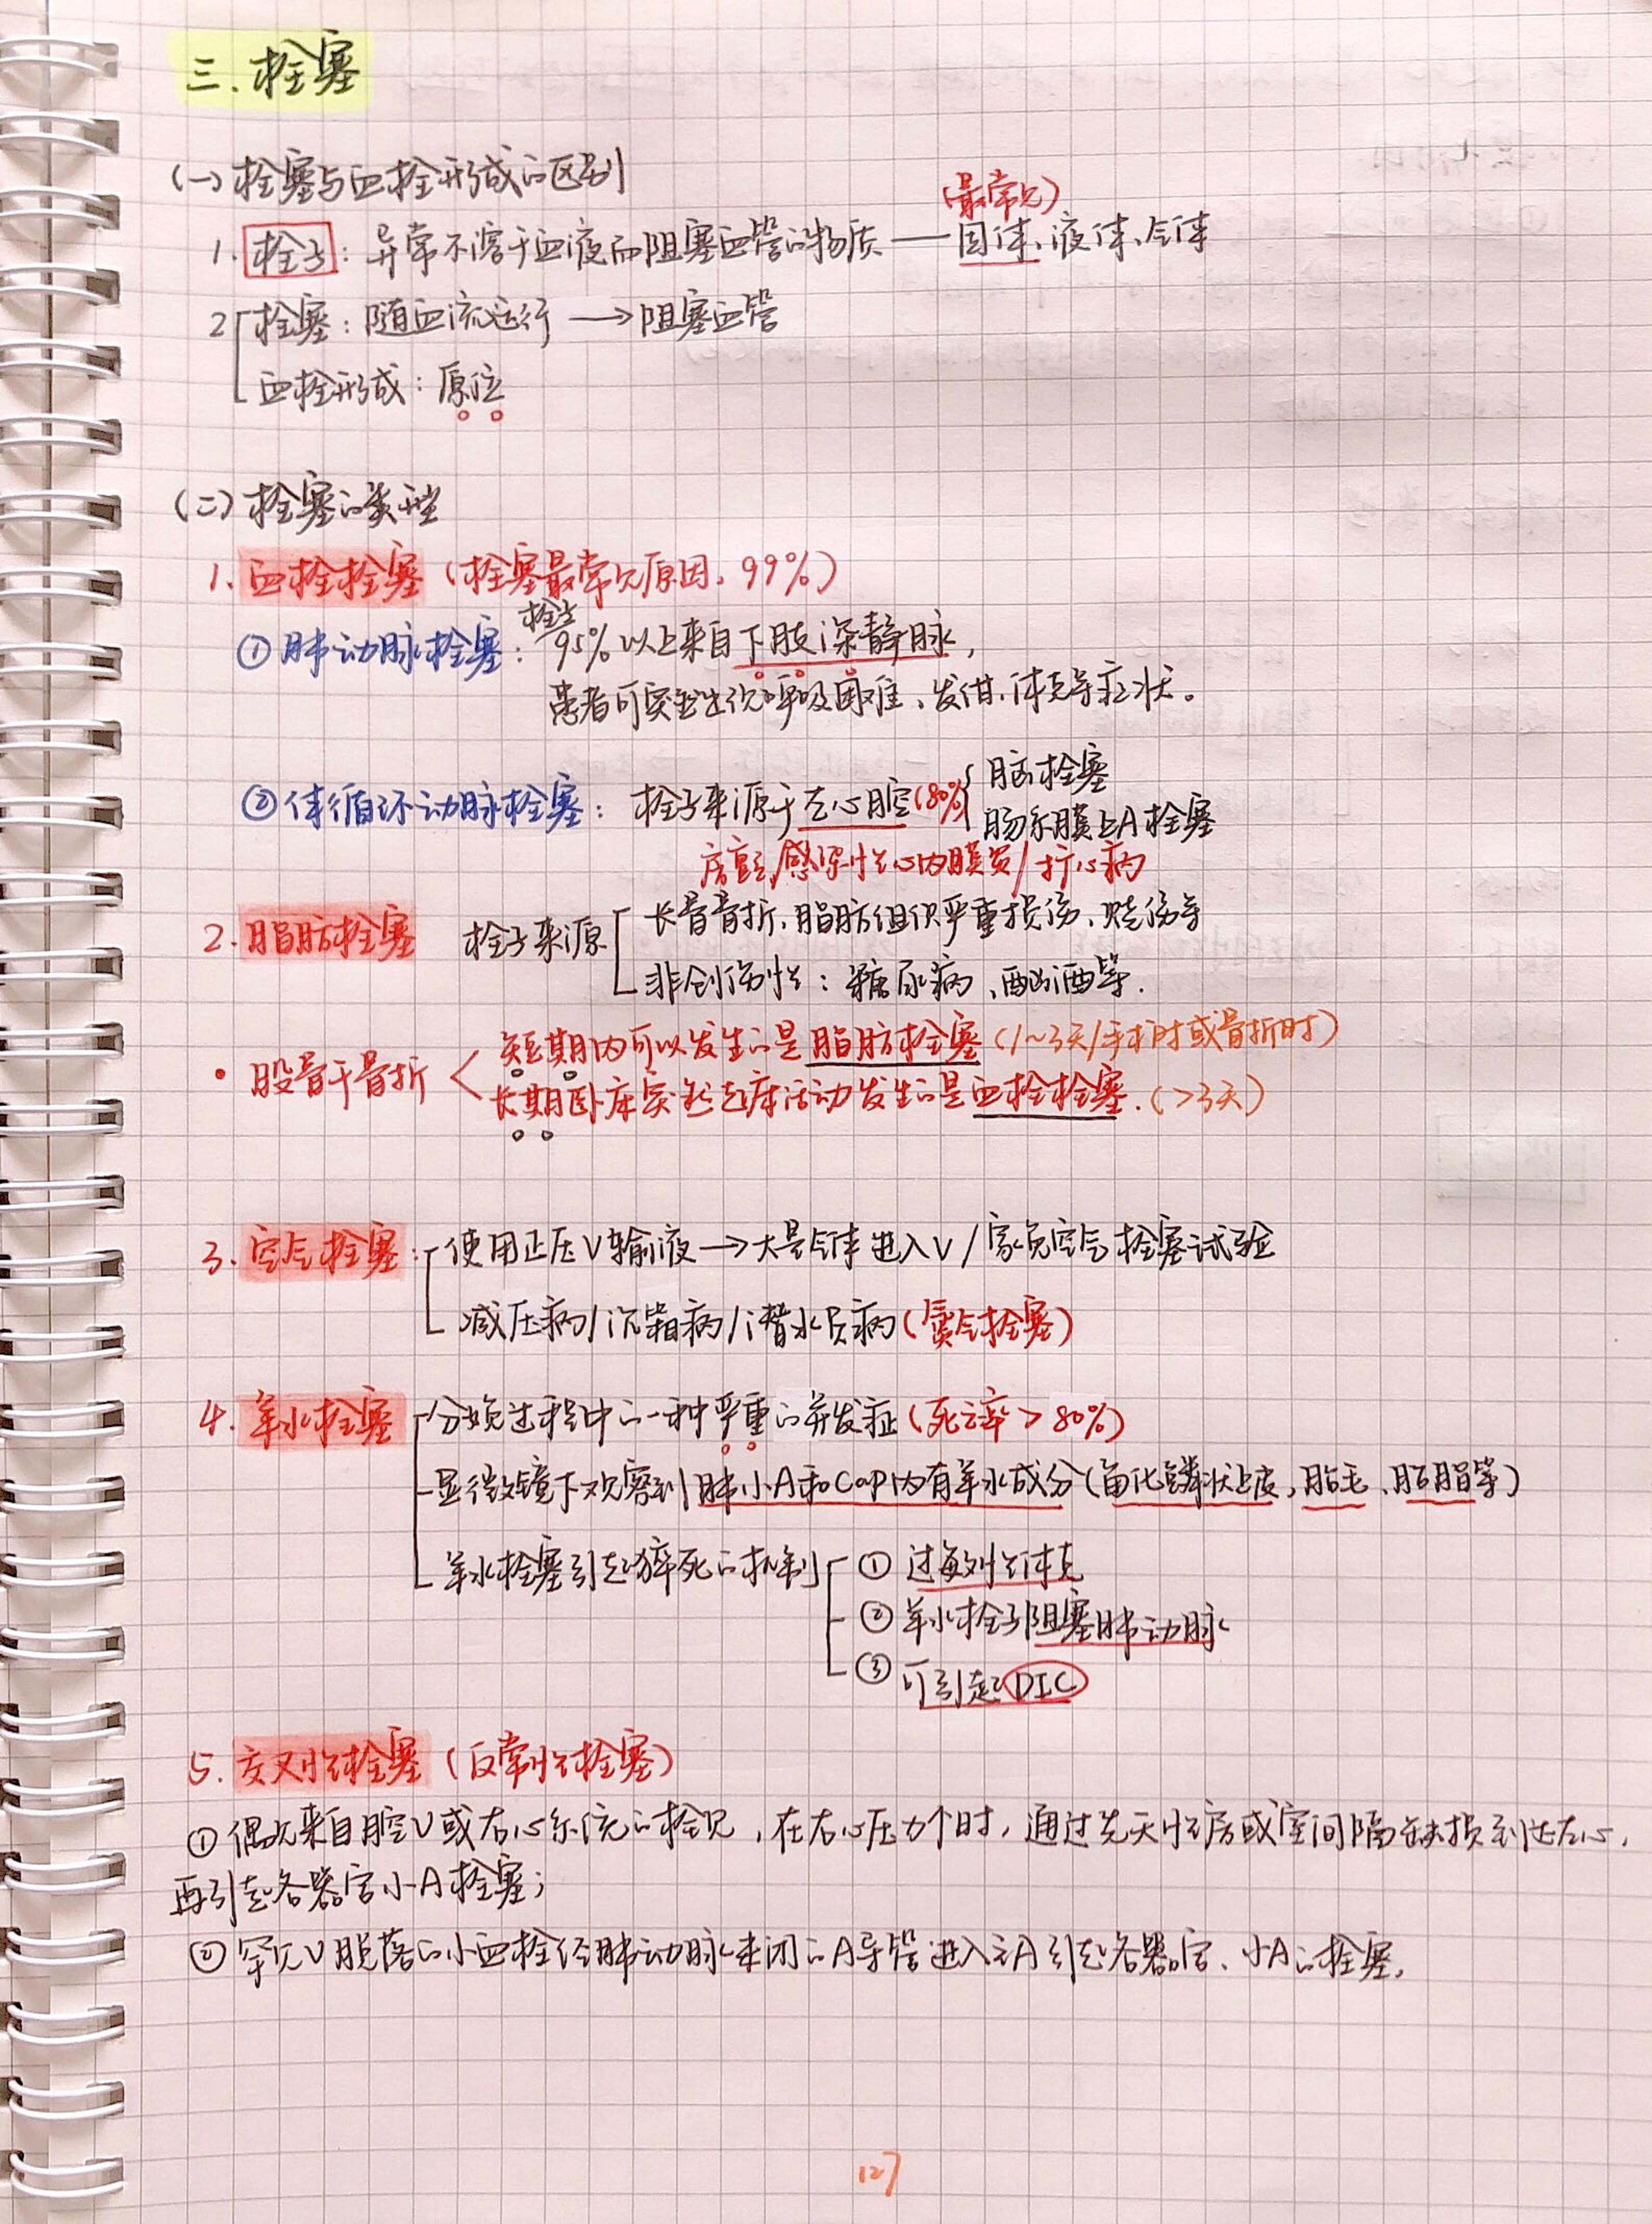 三.栓塞
(一)栓塞与血栓形成的区别
(最常见)
1.栓子：异常不溶于血液而阻塞血管的物质——固体、液体、气体
2 栓塞：随血流运行→阻塞血管
血栓形成：原位
(二)栓塞的类型
1.血栓栓塞(栓塞最常见原因，99%)
栓子
①肺动脉栓塞：95%以上来自下肢深静脉，
患者可突然出现呼吸困难、发绀、休克等症状。
脑栓塞
②体循环动脉栓塞：栓子来源于左心腔(80%)
肠系膜上A栓塞
房室,感染性心内膜炎/扩心病
2.脂肪栓塞 栓子来源
长骨骨折、脂肪组织严重损伤、烧伤等
非创伤性：糖尿病、酗酒等.
短期内可以发生的是脂肪栓塞(1~3天/手术时或骨折时)
·股骨干骨折
长期卧床突然起床活动发生的是血栓栓塞.(>3天)
3.空气栓塞：使用正压V输液→大量气体进入V/家兔空气栓塞试验
减压病/沉箱病/潜水员病(氮气栓塞)
4.羊水栓塞 分娩过程中的一种严重的并发症(死亡率>80%)
显微镜下观察到肺小A和Cap内有羊水成分(角化鳞状上皮,胎毛、胎脂等)
羊水栓塞引起猝死的机制 ①过敏性休克
②羊水栓子阻塞肺动脉
③可引起DIC
5.交叉性栓塞(反常性栓塞)
①偶见来自腔V或右心系统的栓子，在右心压力个时，通过先天性房或室间隔缺损到达左心，
再引起各器官小A栓塞；
②罕见V脱落的小血栓经肺动脉未闭的A导管进入主A引起各器官、小A的栓塞,
127